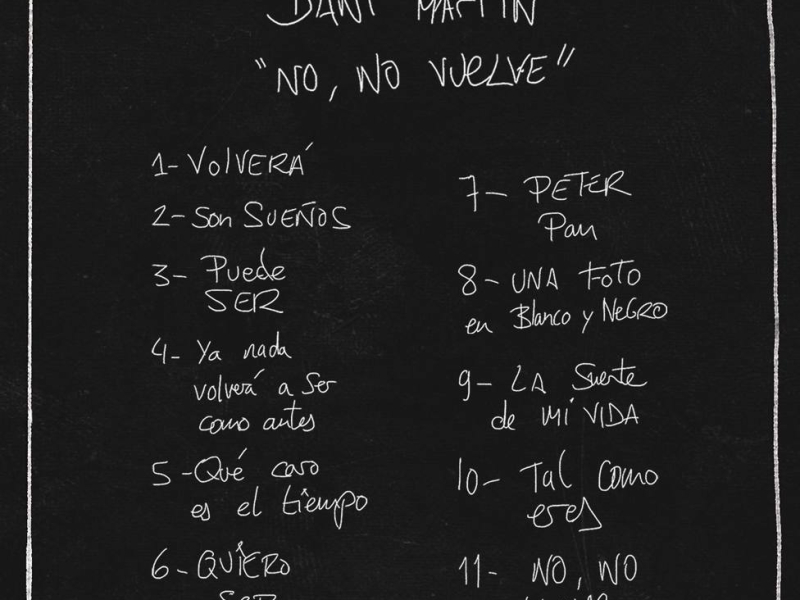 DANI MARTÍN
"NO, NO VUELVE"
1- VOLVERÁ
2- Son SUEÑOS
3- Puede
SER
4- Ya nada
volverá a Ser
como antes
5 - Qué caro
es el tiempo
6 - QUIERO
SER
7- PETER
Pan
8- UNA FOTO
en Blanco y NeGRO
9- LA Suerte
de Mi VIDA
10- Tal Como
eres
11- NO, NO